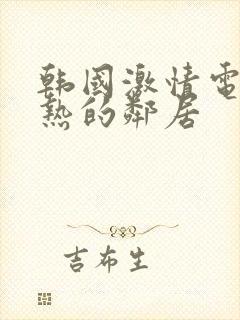 韩國激情電
热的鄰居
吉布生